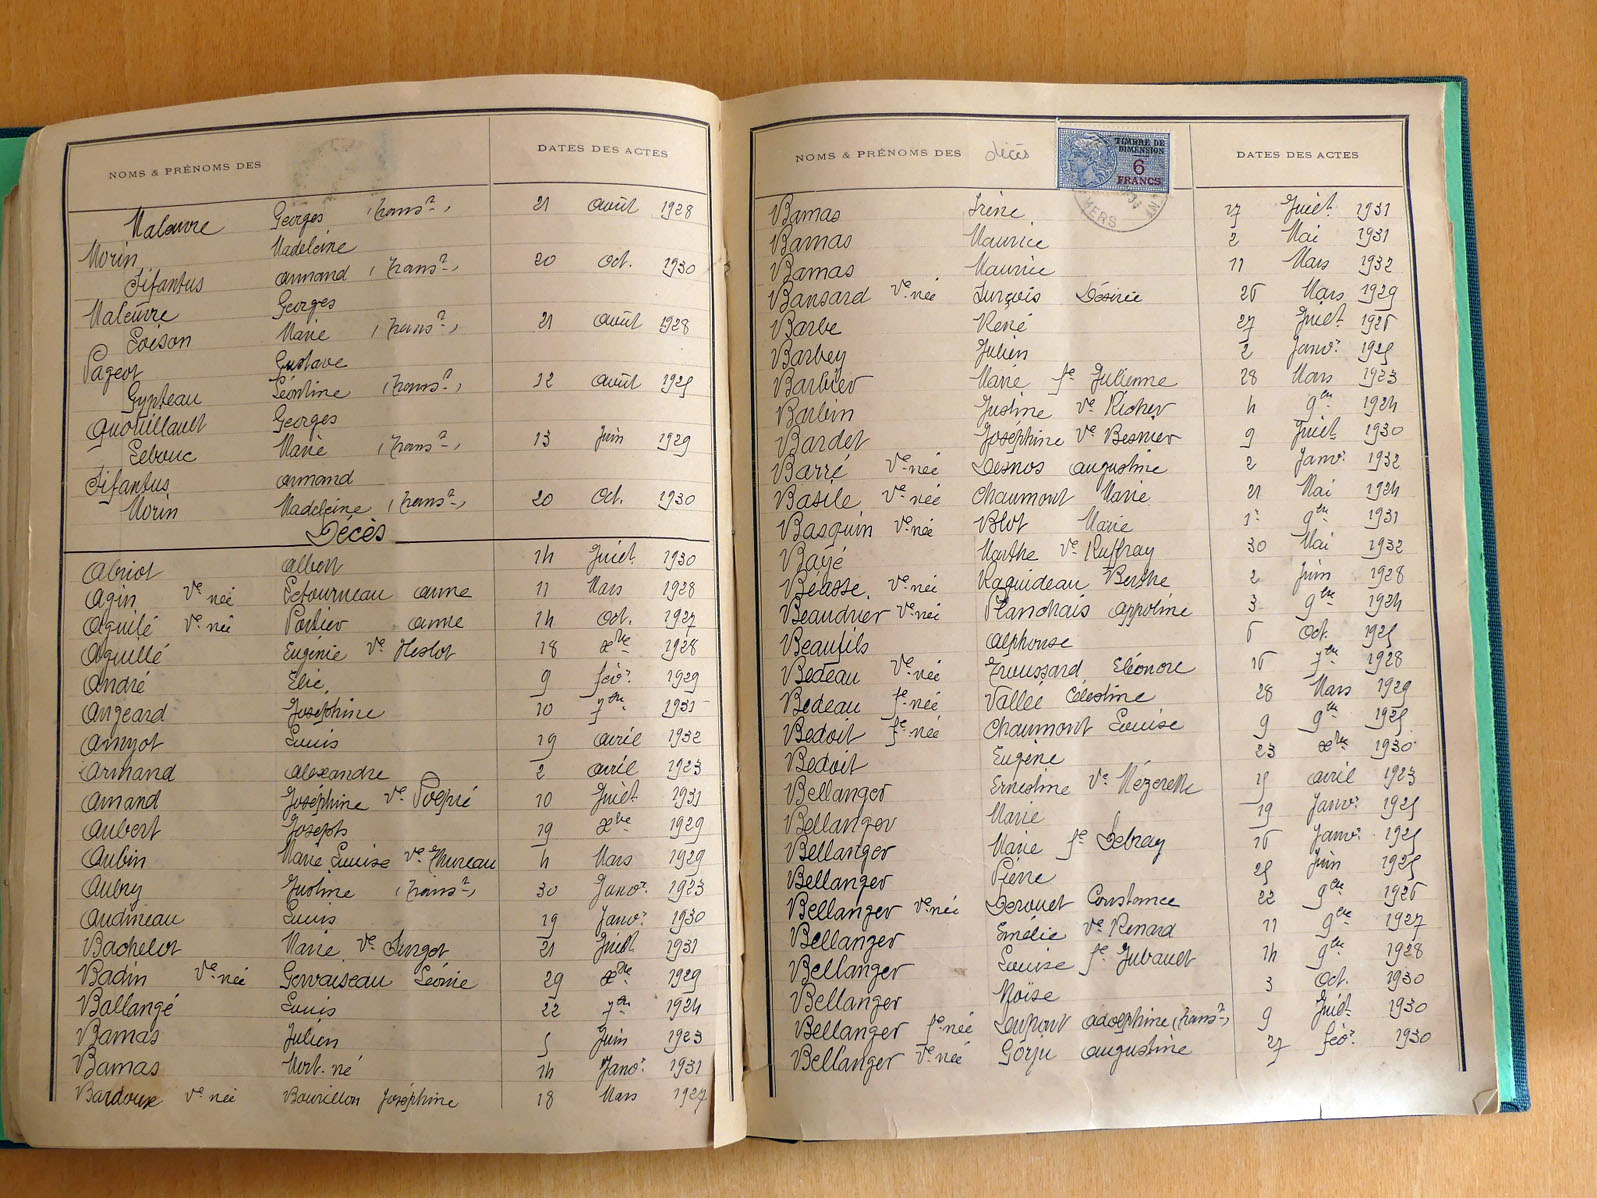 NOMS & PRÉNOMS DES DATES DES ACTES
Maleuvre Georges (trans°n) 21 août 1928
Morin Madeleine
Fifantus armand (trans°n) 20 oct. 1930
Maleuvre Georges
Loison Marie (trans°n) 21 août 1928
Pageot Gustave
Gypteau Léontine (trans°n) 12 août 1925
Quotuillault Georges
Lebouc Marie (trans°n) 13 Juin 1929
Fifantus armand
Morin Madeleine (trans°n) 20 Oct. 1930
Décès
Abriot albert 14 Juiet 1930
Agin Ve née Létourneau anne 11 Mars 1928
Aguilé Ve née Poirier anne 14 oct. 1927
Aguillé Eugénie Ve Heslot 18 xbre 1928
André Elie 9 fév. 1929
Angeard Joséphine 10 7bre 1931
Amyot Louis 19 avril 1932
Armand alexandre 2 avril 1923
Amand Joséphine Ve 10 Juiet 1931
Aubert Joseph 19 xbre 1929
Aubin Marie Louise Ve Thureau 4 Mars 1929
Aubry Justine (trans°n) 30 Janvr 1923
Audineau Louis 19 Janvr 1930
Bachelot Marie Ve 21 Juiet 1931
Badin Ve née Gervaiseau Léonie 29 xbre 1929
Ballangé Louis 22 7bre 1924
Bamas Julien 5 Juin 1923
Bamas Mort-né 14 Janvr 1931
Bardoux Ve née Bourillon Joséphine 18 Mars 1927
NOMS & PRÉNOMS DES décès DATES DES ACTES
TIMBRE DE DIMENSION
6
FRANCS
Bamas Irène 27 Juiet 1931
Bamas Maurice 2 Mai 1931
Bamas Maurice 11 Mars 1932
Bansard Ve née Désirée 26 Mars 1929
Barbe René 27 Juiet 1926
Barbey Julien 2 Janvr 1925
Barbier Marie fe Julienne 28 Mars 1923
Barbin Justine Ve Richer 4 9bre 1924
Bardet Joséphine Ve Besnier 9 Juiet 1930
Barré Ve née Desnos augustine 2 Janvr 1932
Basile Ve née Chaumont Marie 21 Mai 1924
Basquin Ve née Blot Marie 1er 9bre 1931
Bayé Marthe Ve Ruffray 30 Mai 1932
Béasse Ve née Raguideau Berthe 2 Juin 1928
Beaudrier Ve née Planchais appoline 3 9bre 1924
Beaufils alphonse 6 oct. 1925
Bedeau Ve née Troussard Eléonore 16 7bre 1928
Bedeau fe née Vallée Célestine 28 Mars 1929
Bedoit fe née Chaumont Louise 9 9bre 1925
Bedoit Eugène 23 xbre 1930
Bellanger Ernestine Ve Mézerette 15 avril 1923
Bellanger Marie 19 Janvr 1925
Bellanger Marie fe Debray 16 Janvr 1925
Bellanger Pierre 25 Juin 1925
Bellanger Ve née Derouet Constance 22 9bre 1926
Bellanger Emélie Ve Renard 11 9bre 1927
Bellanger Louise fe Jubault 14 9bre 1928
Bellanger Moïse 3 Oct. 1930
Bellanger fe née Dupont adolphine (trans°n) 9 Juiet 1930
Bellanger Ve née Gorju augustine 27 fév. 1930